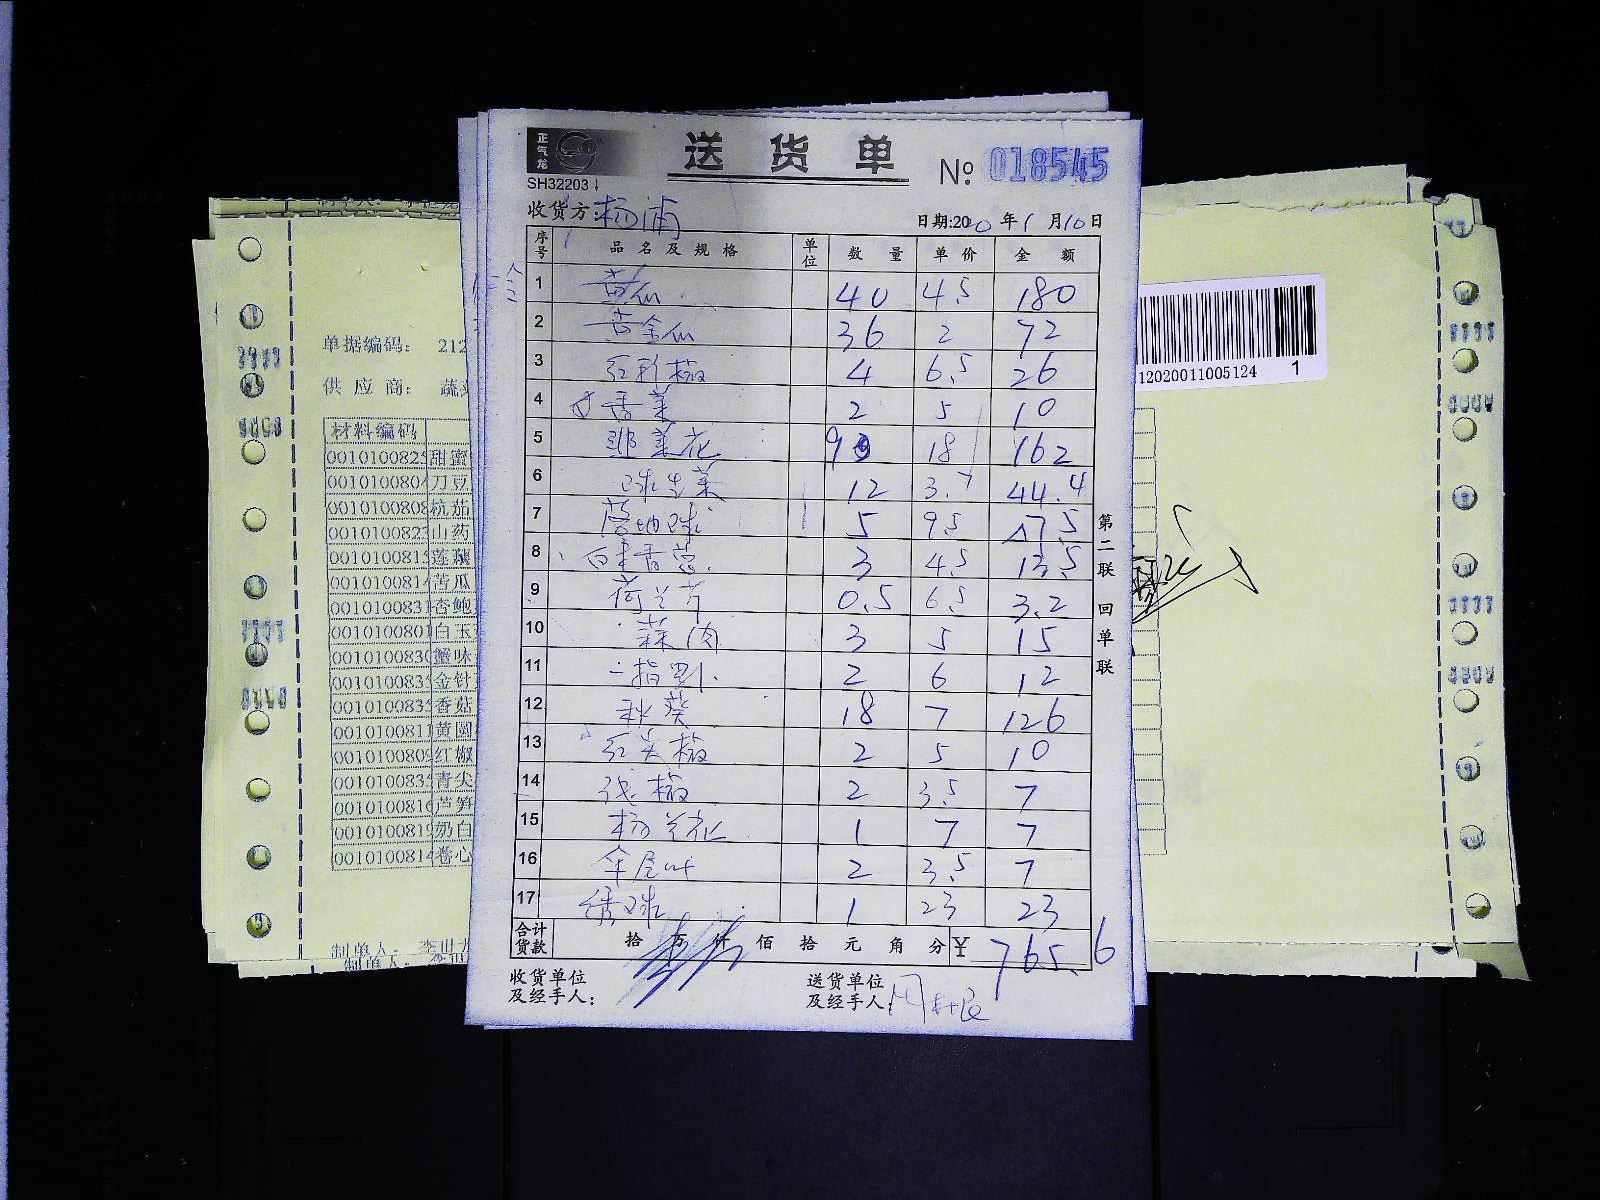 正气龙
送货单
№ 018545
SH32203
收货方:杨浦
日期:2020年1月10日
序号 品名及规格 单位 数量 单价 金额
1 黄瓜 40 4.5 180
2 黄金瓜 36 2 72
3 红彩椒 4 6.5 26
4 香菜 2 5 10
5 韭菜花 9 18 162
6 球生菜 12 3.7 44.4
7 5 9.5 47.5
8 3 4.5 13.5
9 荷兰芹 0.5 6.5 3.2
10 蒜肉 3 5 15
11 2 6 12
12 秋葵 18 7 126
13 红尖椒 2 5 10
14 线椒 2 3.5 7
15 杨兰花 1 7 7
16 2 3.5 7
17 绣球 1 23 23
合计货款 拾 万 仟 佰 拾 元 角 分 ¥ 765.6
收货单位及经手人:
送货单位及经手人:
第二联 回单联
单据编码: 212
供应商: 蔬
材料编码
001010082 甜蜜
001010080 刀豆
001010080 杭茄
001010082 山药
001010081 莲藕
001010081 苦瓜
001010083 杏鲍
001010080 白玉
001010083 蟹味
001010083 金针
001010083 香菇
001010081 黄圆
001010080 红椒
001010083 青尖
001010081 芦笋
001010081 奶白
001010081 卷心
制单人: 李世
12020011005124 1